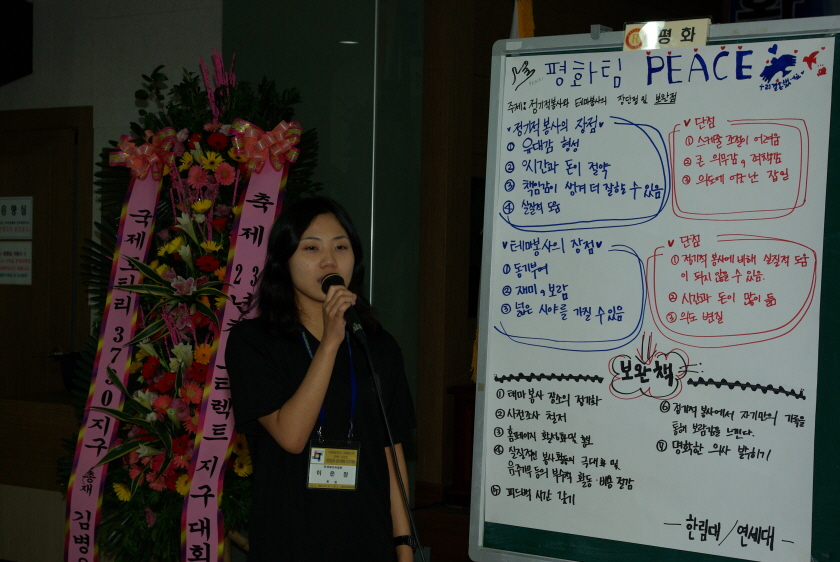 평화
평화팀 PEACE
주제: 정기적봉사와 테마봉사의 장단점 및 보완점
정기적 봉사의 장점
① 유대감 형성
② 시간과 돈이 절약
③ 책임감이 생겨 더 잘할 수 있음
④ 실질적 도움
단점
① 스케쥴 조절이 어려움
② 큰 의무감, 죄책감
③ 의도에 어긋난 잡일
테마봉사의 장점
① 동기부여
② 재미, 보람
③ 넓은 시야를 가질 수 있음
단점
① 정기적 봉사에 비해 실질적 도움
이 되지 않을 수 있음.
② 시간과 돈이 많이 듦
③ 의도 변질
보완책
① 테마봉사 장소의 정기화
② 사전조사 철저
③ 홈페이지 활성화 및
④ 실질적인 봉사활동의 극대화 및
음주가무 등의 부수적 활동·비용 절감
⑤ 피드백 시간 갖기
⑥ 정기적 봉사에서 자기만의
통해 보람감을 느낀다.
⑦ 명확한 의사 밝히기
- 한림대/연세대 -
국제로타리 3730지구 총재 김병
축제 23년차 로타랙트 지구대회